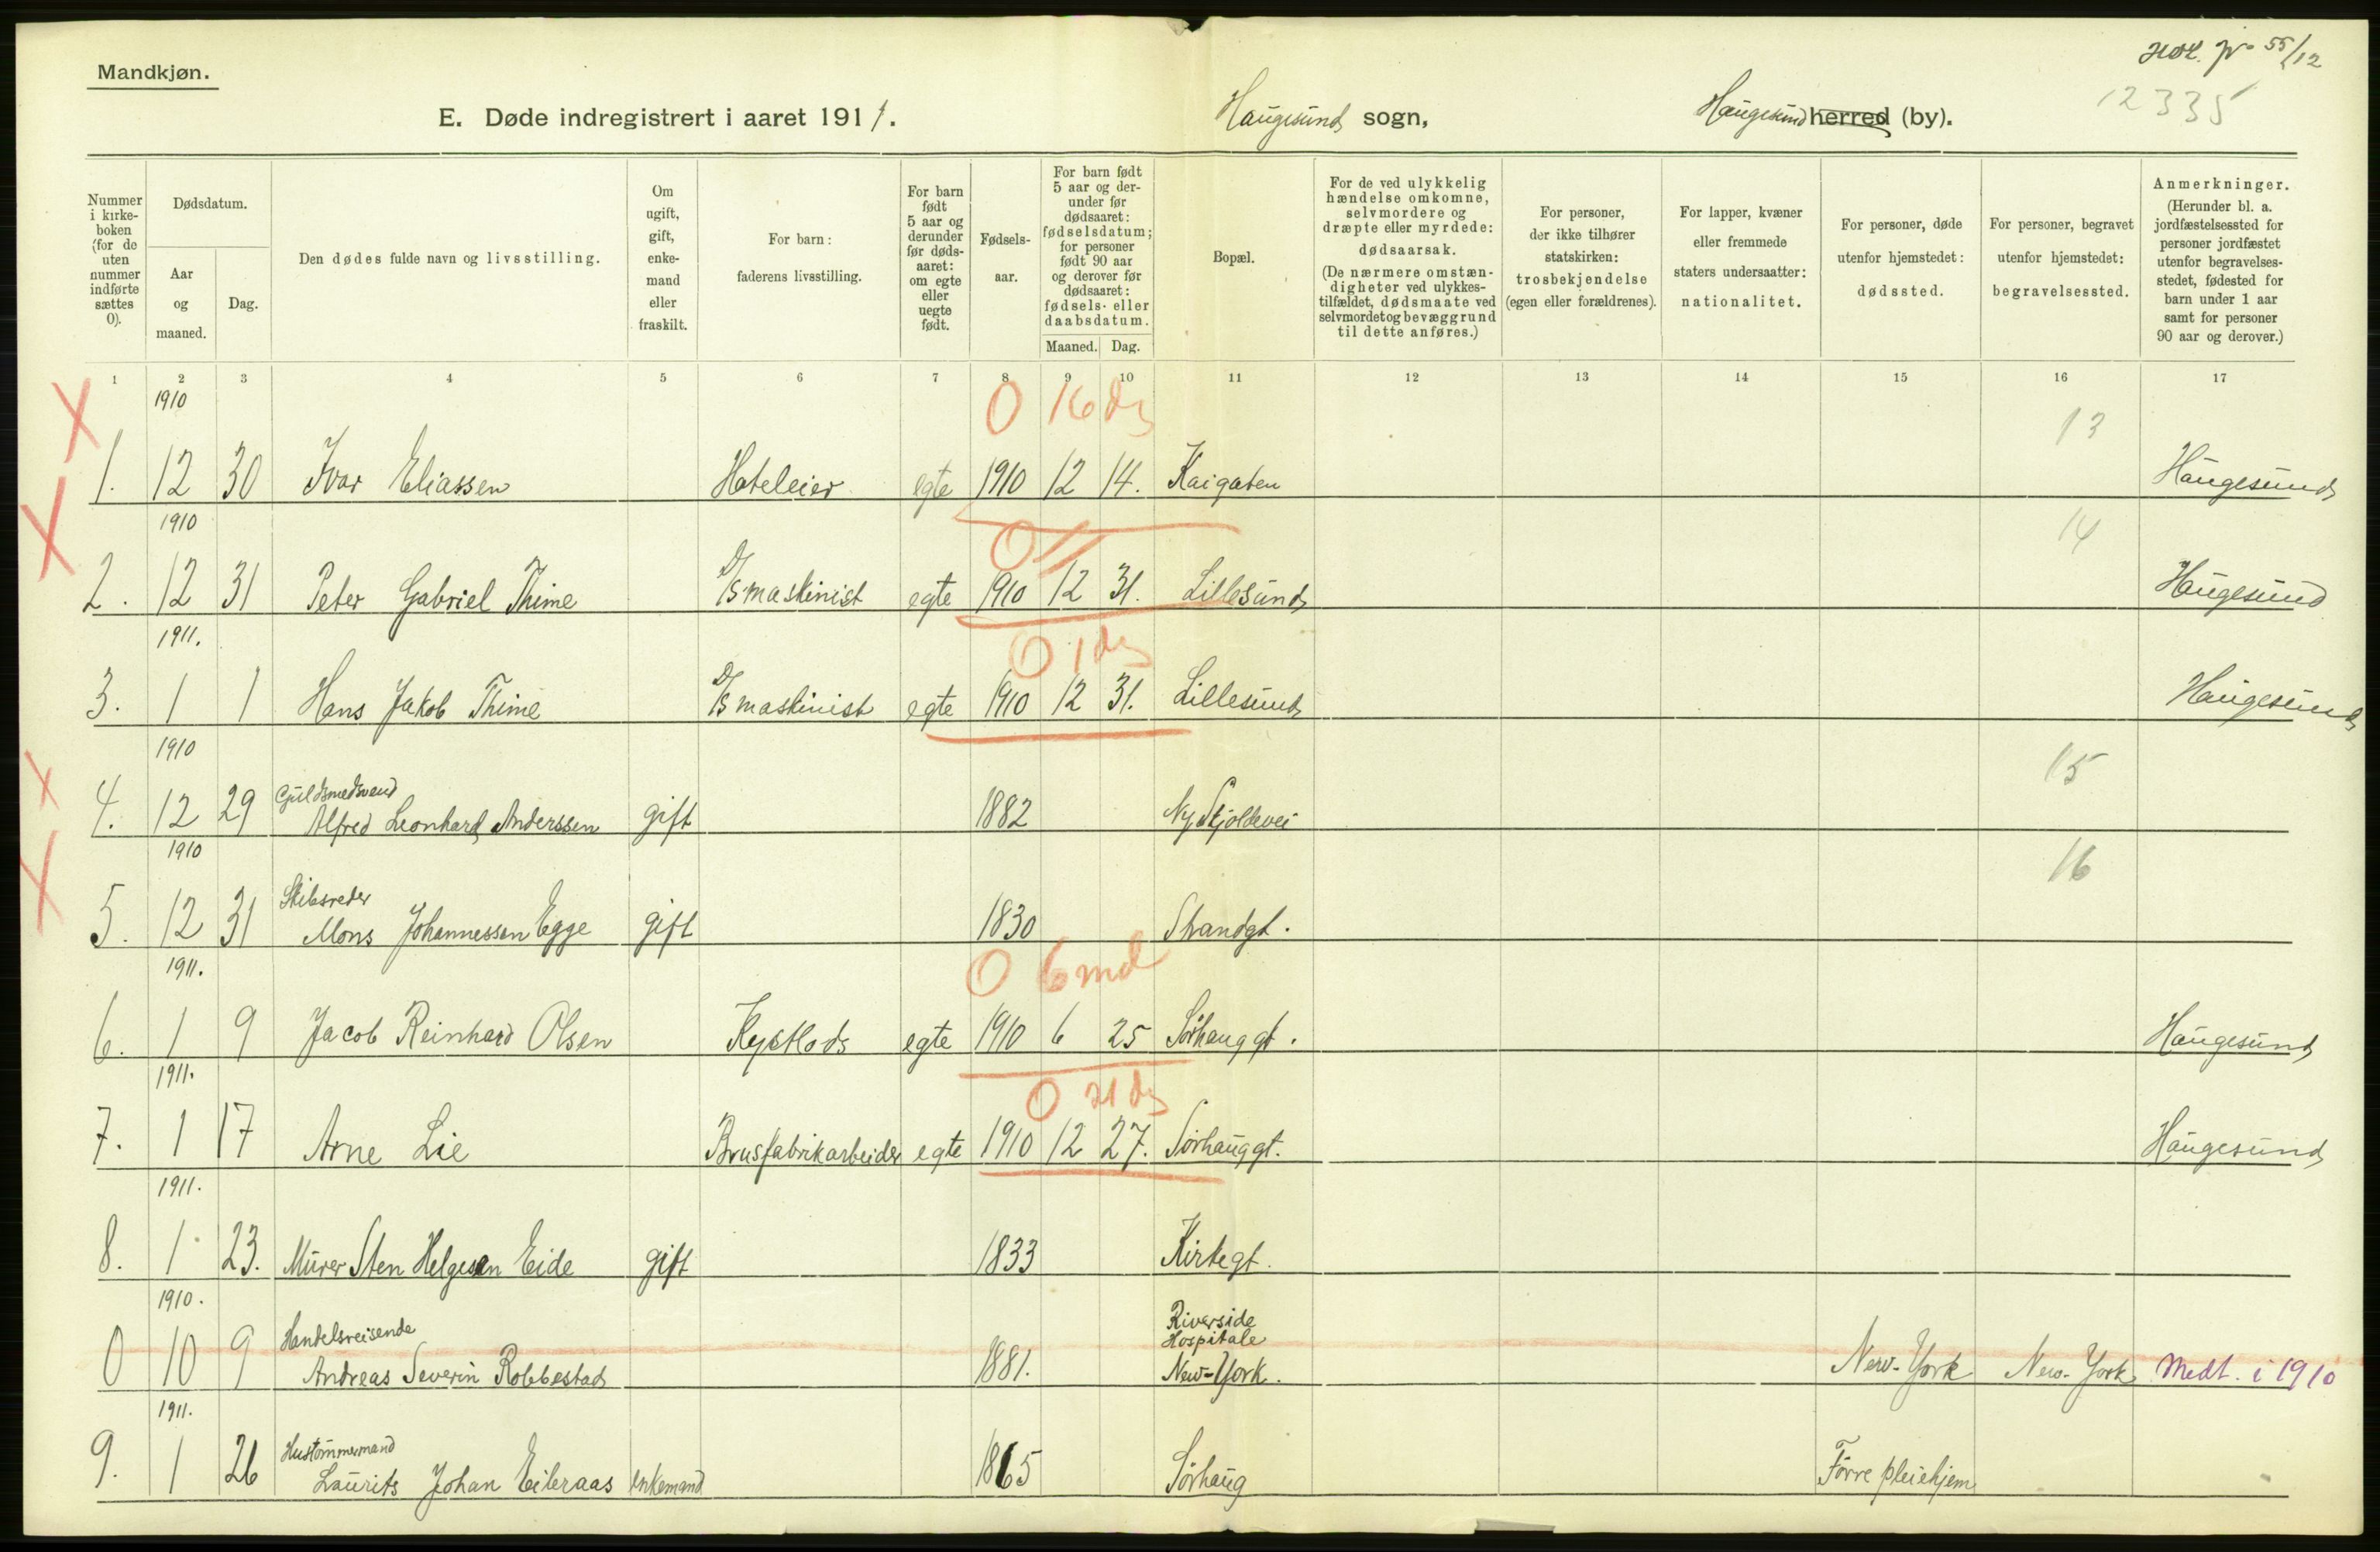 Mandkjøn.
E. Døde indregistrert i aaret 1911. Haugesund sogn, Haugesund herred (by).
55/12
12335
Nummer i kirke-boken (for de uten nummer indførte sættes 0).
Dødsdatum.
Aar og maaned.
Dag.
Den dødes fulde navn og livsstilling.
Om ugift, gift, enke-mand eller fraskilt.
For barn: faderens livsstilling.
For barn født 5 aar og derunder før døds-aaret: om egte eller uegte født.
Fødsels-aar.
For barn født 5 aar og der-under før dødsaaret: fødselsdatum; for personer født 90 aar og derover før dødsaaret: fødsels- eller daabsdatum.
Maaned. Dag.
Bopæl.
For de ved ulykkelig hændelse omkomne, selvmordere og dræpte eller myrdede: dødsaarsak. (De nærmere omstæn-digheter ved ulykkes-tilfældet, dødsmaate ved selvmordet og bevæggrund til dette anføres.)
For personer, der ikke tilhører statskirken: trosbekjendelse (egen eller forældrenes).
For lapper, kvæner eller fremmede staters undersaatter: nationalitet.
For personer, døde utenfor hjemstedet: dødssted.
For personer, begravet utenfor hjemstedet: begravelsessted.
Anmerkninger. (Herunder bl. a. jordfæstelsessted for personer jordfæstet utenfor begravelses-stedet, fødested for barn under 1 aar samt for personer 90 aar og derover.)
1 2 3 4 5 6 7 8 9 10 11 12 13 14 15 16 17
1910 0 16 ds 13
1. 12 30 Ivar Eliassen Hoteleier egte 1910 12 14. Kaigaten Haugesund
1910 0 14
2. 12 31 Peter Gabriel Thime D/S maskinist egte 1910 12 31. Lillesund Haugesund
1911. 0 1 ds
3. 1 1 Hans Jakob Thime D/S maskinist egte 1910 12 31. Lillesund Haugesund
1910 15
Guldsmedsvend
4. 12 29 Alfred Leonhard Anderssen gift 1882 Ny Skjoldevei
1910 16
Skibsreder
5. 12 31 Mons Johannessen Egge gift 1830 Strandgt.
1911. 0 6 md
6. 1 9 Jacob Reinhard Olsen Kystlods egte 1910 6 25 Sørhauggt. Haugesund
1911. 0 21 ds
7. 1 17 Arne Lie Brusfabrikarbeider egte 1910 12 27. Sørhauggt. Haugesund
1911.
8. 1 23. Murer Sten Helgesen Eide gift 1833 Kirkegt.
1910. Riverside
Handelsreisende Hospitale
0 10 9 Andreas Severin Robbestad 1881. New-York. New-York New-York Medt. i 1910
1911.
Hustømmermand
9. 1 26 Laurits Johan Eikeraas enkemand 1865 Sørhaug Førre pleiehjem